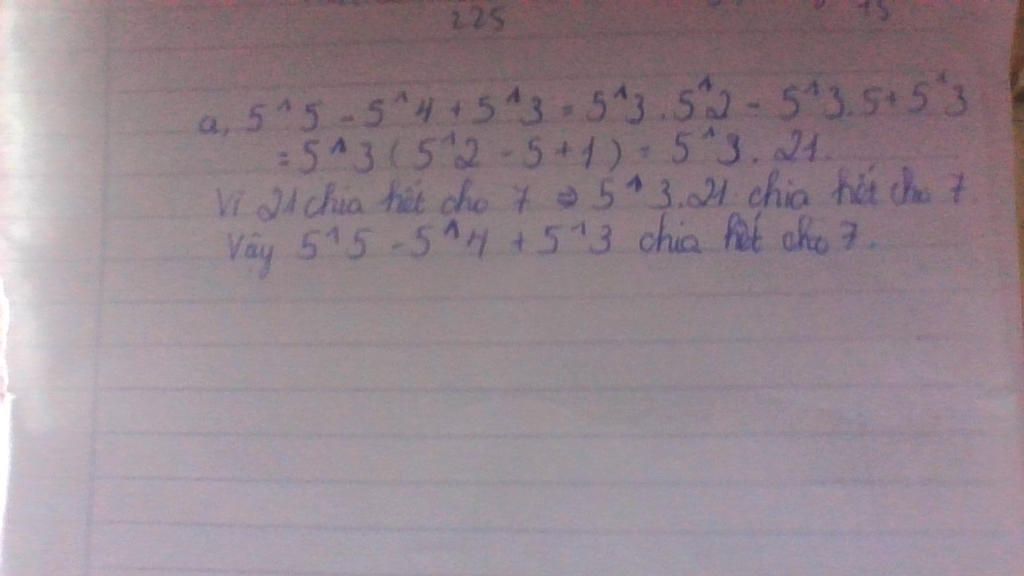 225
15
a, 5^5 - 5^4 + 5^3 = 5^3 . 5^2 - 5^3.5 + 5^3
= 5^3 ( 5^2 - 5 + 1 ) = 5^3. 21.
Vì 21 chia hết cho 7 => 5^3.21 chia hết cho 7.
Vậy 5^5 - 5^4 + 5^3 chia hết cho 7.